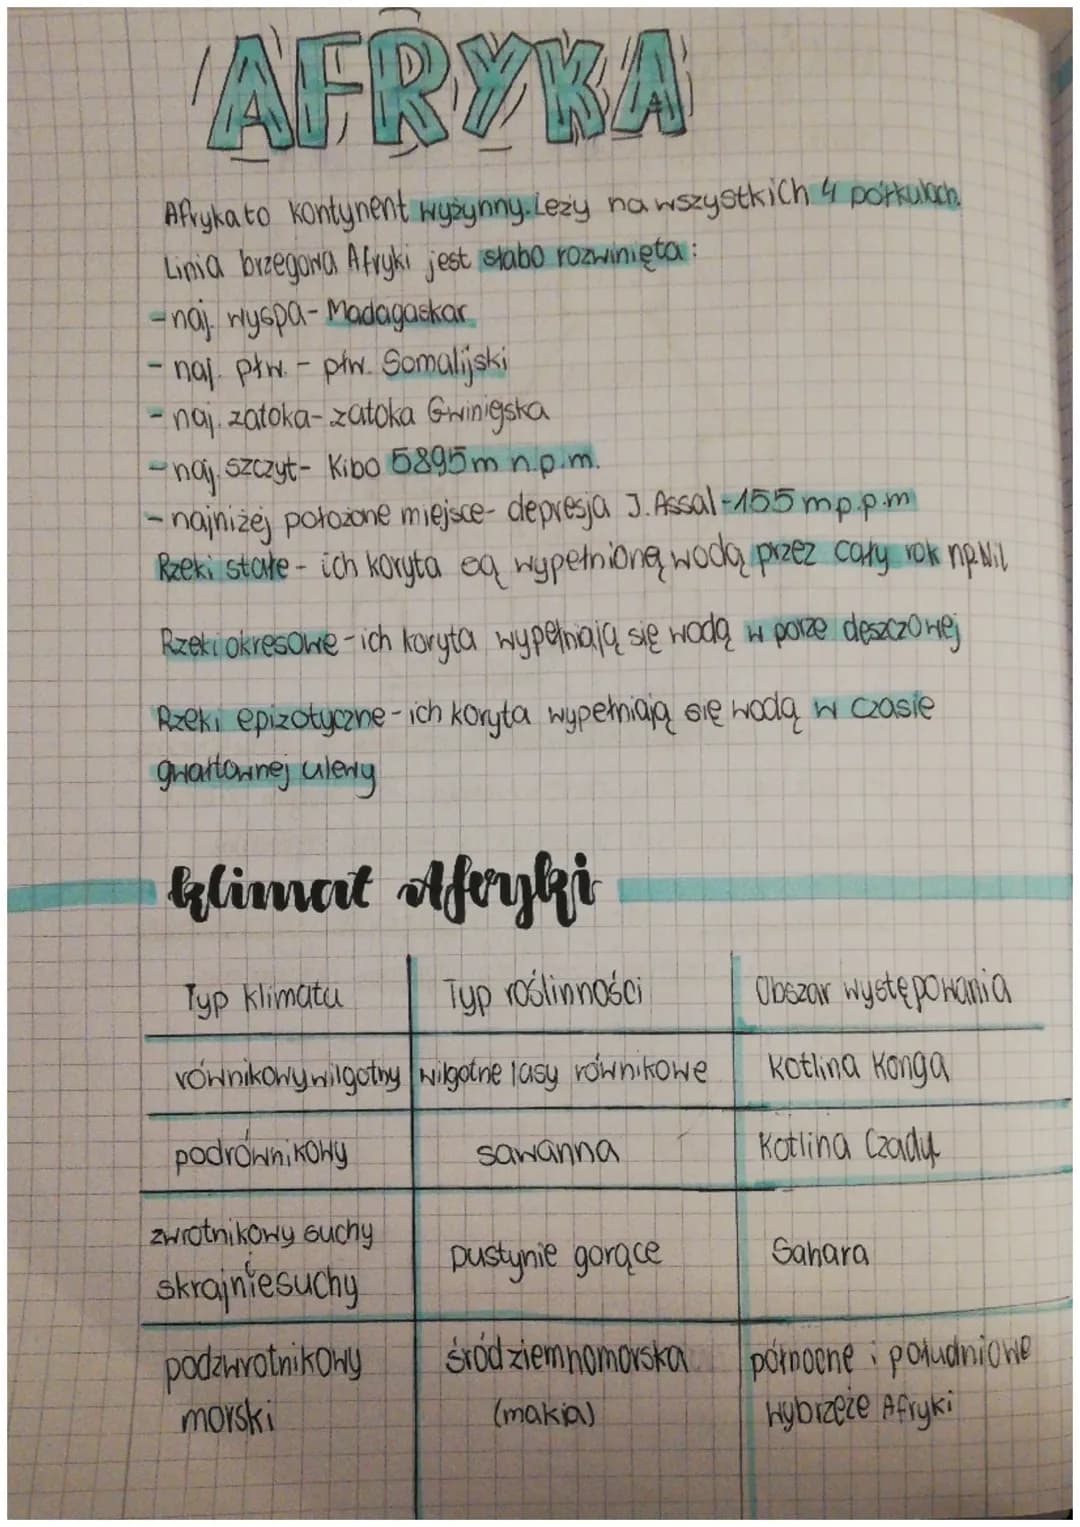 AFRYKA
Afryka to kontynent wyżynny. Leży na wszystkich 4 półkulach.
Linia brzegowa Afryki jest słabo rozwinięta:
- naj. wyspa - Madagaskar
- naj. płw. - płw. Somalijski
- naj. zatoka - zatoka Gwinigska
- naj. szczyt - Kibo 5895m n.p.m.
- najniżej położone miejsce - depresja J. Assal -155 m p.p.m
Rzeki stałe - ich koryta są wypełnioną wodą przez cały rok np. Nil
Rzeki okresowe - ich koryta wypełniają się wodą w porze deszczowej
Rzeki epizotyczne - ich koryta wypełniają się wodą w czasie
gwałtownej ulewy
klimat Afryki
Typ klimatu Typ roślinności Obszar występowania
równikowy wilgotny wilgotne lasy równikowe kotlina Konga
podrównikowy sawanna Kotlina Czadu
zwrotnikowy suchy
skrajnie suchy pustynie gorące Sahara
podzwrotnikowy śródziemnomorska północne i południowe
morski (makia) wybrzeże Afryki